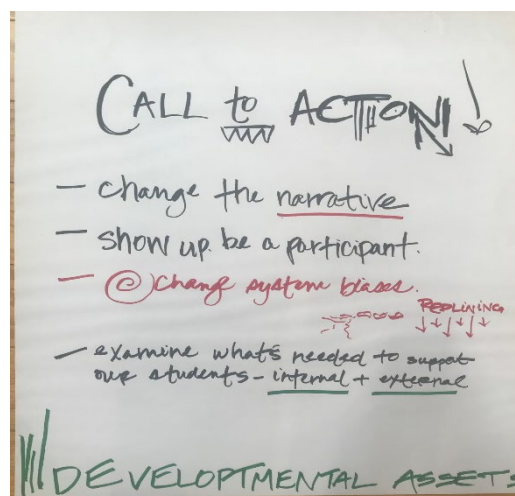 CALL to ACTION!
- change the narrative
- show up. be a participant.
- @ change system biases.
REDLINING
- examine what's needed to support
our students - internal + external
DEVELOPTMENTAL ASSETS